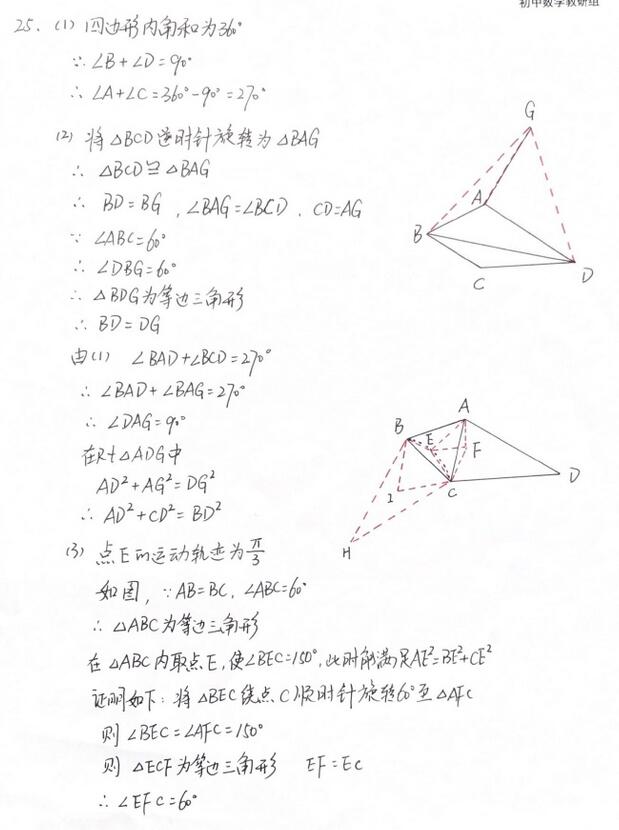 初中数学教研组
25. (1) 四边形内角和为360°
∵ ∠B+∠D=90°
∴ ∠A+∠C=360°-90°=270°
(2) 将△BCD逆时针旋转为△BAG
∴ △BCD≌△BAG
∴ BD=BG,∠BAG=∠BCD、CD=AG
∵ ∠ABC=60°
∴ ∠DBG=60°
∴ △BDG为等边三角形
∴ BD=DG
由(1) ∠BAD+∠BCD=270°
∴ ∠BAD+∠BAG=270°
∴ ∠DAG=90°
在Rt△ADG中
AD²+AG²=DG²
∴ AD²+CD²=BD²
(3) 点E的运动轨迹为π/3
如图,∵AB=BC,∠ABC=60°
∴ △ABC为等边三角形
在△ABC内取点E,使∠BEC=150°,此时能满足AE²=BE²+CE²
证明如下:将△BEC绕点C顺时针旋转60°至△AFC
则∠BEC=∠AFC=150°
则 △ECF为等边三角形 EF=EC
∴ ∠EFC=60°
G
A
B
C
D
A
B
E
F
C
D
I
H